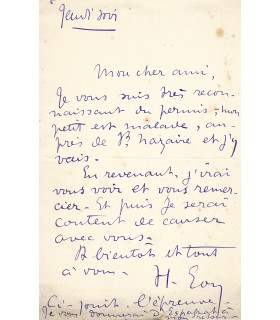 Jeudi soir
Mon cher ami,
Je vous suis très recon-
naissant du permis; mon
petit est malade, au-
près de St. Nazaire et j'y
vais.
En revenant, j'irai
vous voir et vous remer-
cier. Et puis je serai
content de causer
avec vous.
A bientot et tout
à vous.
H.
Ci-joint l'épreuve.
Je vous donnerai D'Espagnat à